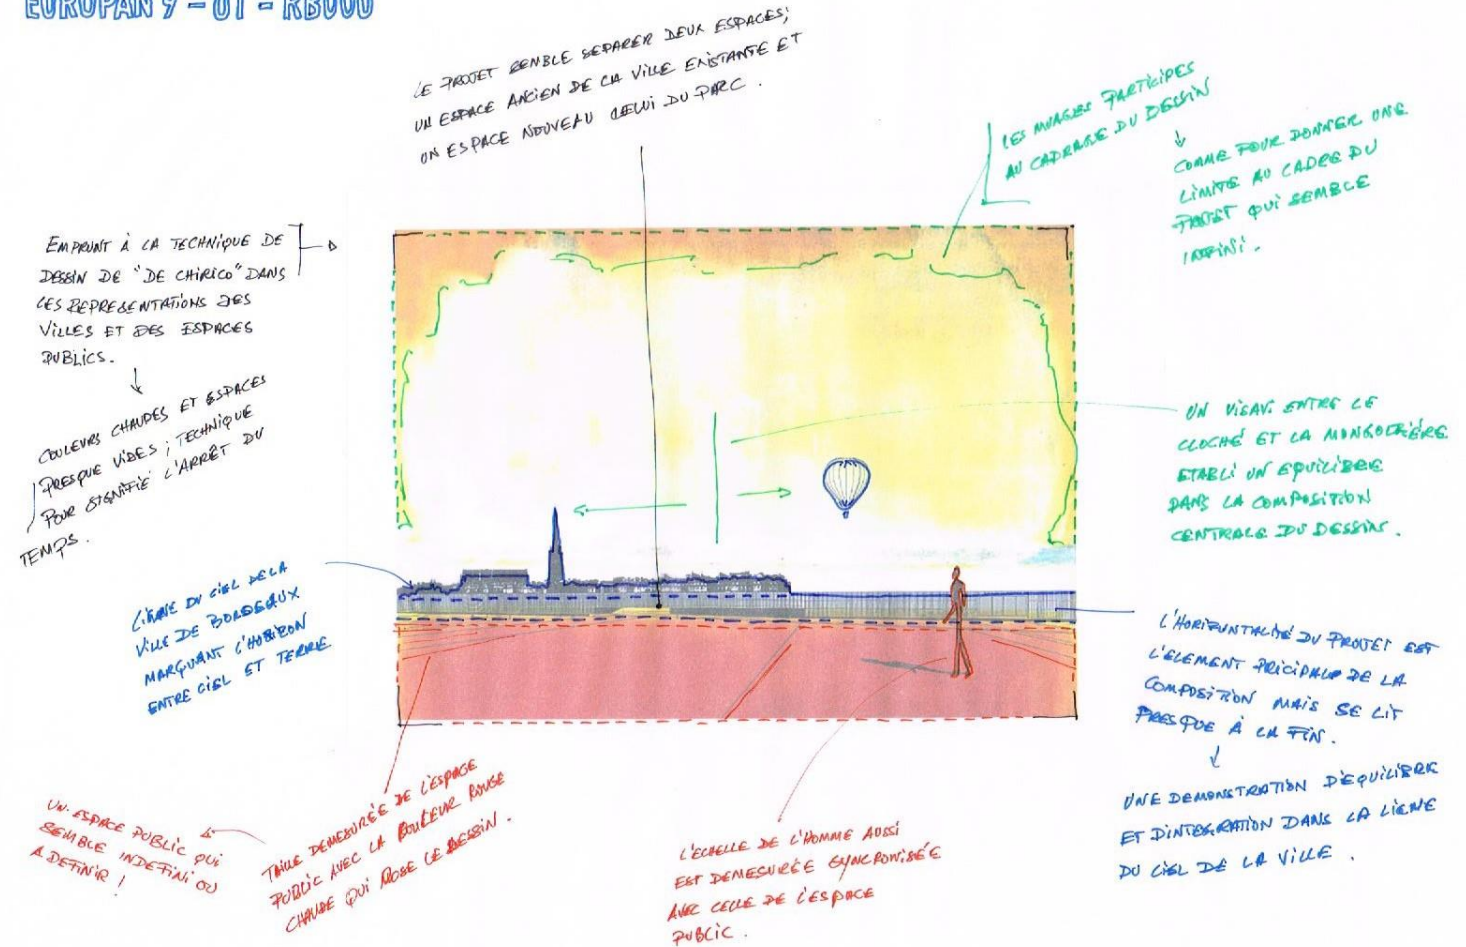 EUROPAN 9 - 01 - RB000
LE PROJET SEMBLE SEPARER DEUX ESPACES;
UN ESPACE ANCIEN DE LA VILLE EXISTANTE ET
UN ESPACE NOUVEAU CELUI DU PARC.
LES NUAGES PARTICIPES
AU CADRAGE DU DESSIN
COMME POUR DONNER UNE
LIMITE AU CADRE DU
PROJET QUI SEMBLE
INFINI.
EMPRUNT À LA TECHNIQUE DE
DESSIN DE "DE CHIRICO" DANS
LES REPRESENTATIONS DES
VILLES ET DES ESPACES
PUBLICS.
COULEURS CHAUDES ET ESPACES
PRESQUE VIDES; TECHNIQUE
POUR SIGNIFIÉ L'ARRÊT DU
TEMPS.
UN VISAVI ENTRE LE
CLOCHÉ ET LA MONGOLFIÈRE
ETABLI UN EQUILIBRE
DANS LA COMPOSITION
CENTRALE DU DESSIN.
LIGNE DU CIEL DE LA
VILLE DE BORDEAUX
MARQUANT L'HORIZON
ENTRE CIEL ET TERRE
L'HORIZONTALITÉ DU PROJET EST
L'ELEMENT PRICIPALE DE LA
COMPOSITION MAIS SE LIT
PRESQUE À LA FIN.
UNE DEMONSTRATION D'EQUILIBRE
ET D'INTEGRATION DANS LA LIGNE
DU CIEL DE LA VILLE.
UN ESPACE PUBLIC QUI
SEMBLE INDEFINI OU
A DEFINIR!
TAILLE DEMESURÉE DE L'ESPACE
PUBLIC AVEC LA COULEUR ROUGE
CHAUDE QUI POSE LE DESSIN.
L'ECHELLE DE L'HOMME AUSSI
EST DEMESURÉE SYNCRONISÉE
AVEC CELLE DE L'ESPACE
PUBLIC.